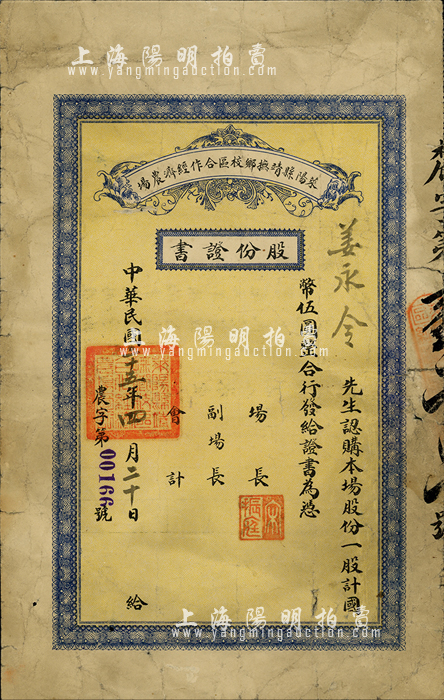 上海陽明拍賣
www.yangmingauction.com
萊陽縣靖撫鄉校區合作經濟農場
股份證書
姜永令 先生認購本場股份一股計國
幣伍圓整合行發給證書為憑
場長
副場長
會計
中華民國十五年四月二十日給
農字第00166號
上海陽明拍賣
www.yangmingauction.com
上海陽明拍賣
www.yangmingauction.com